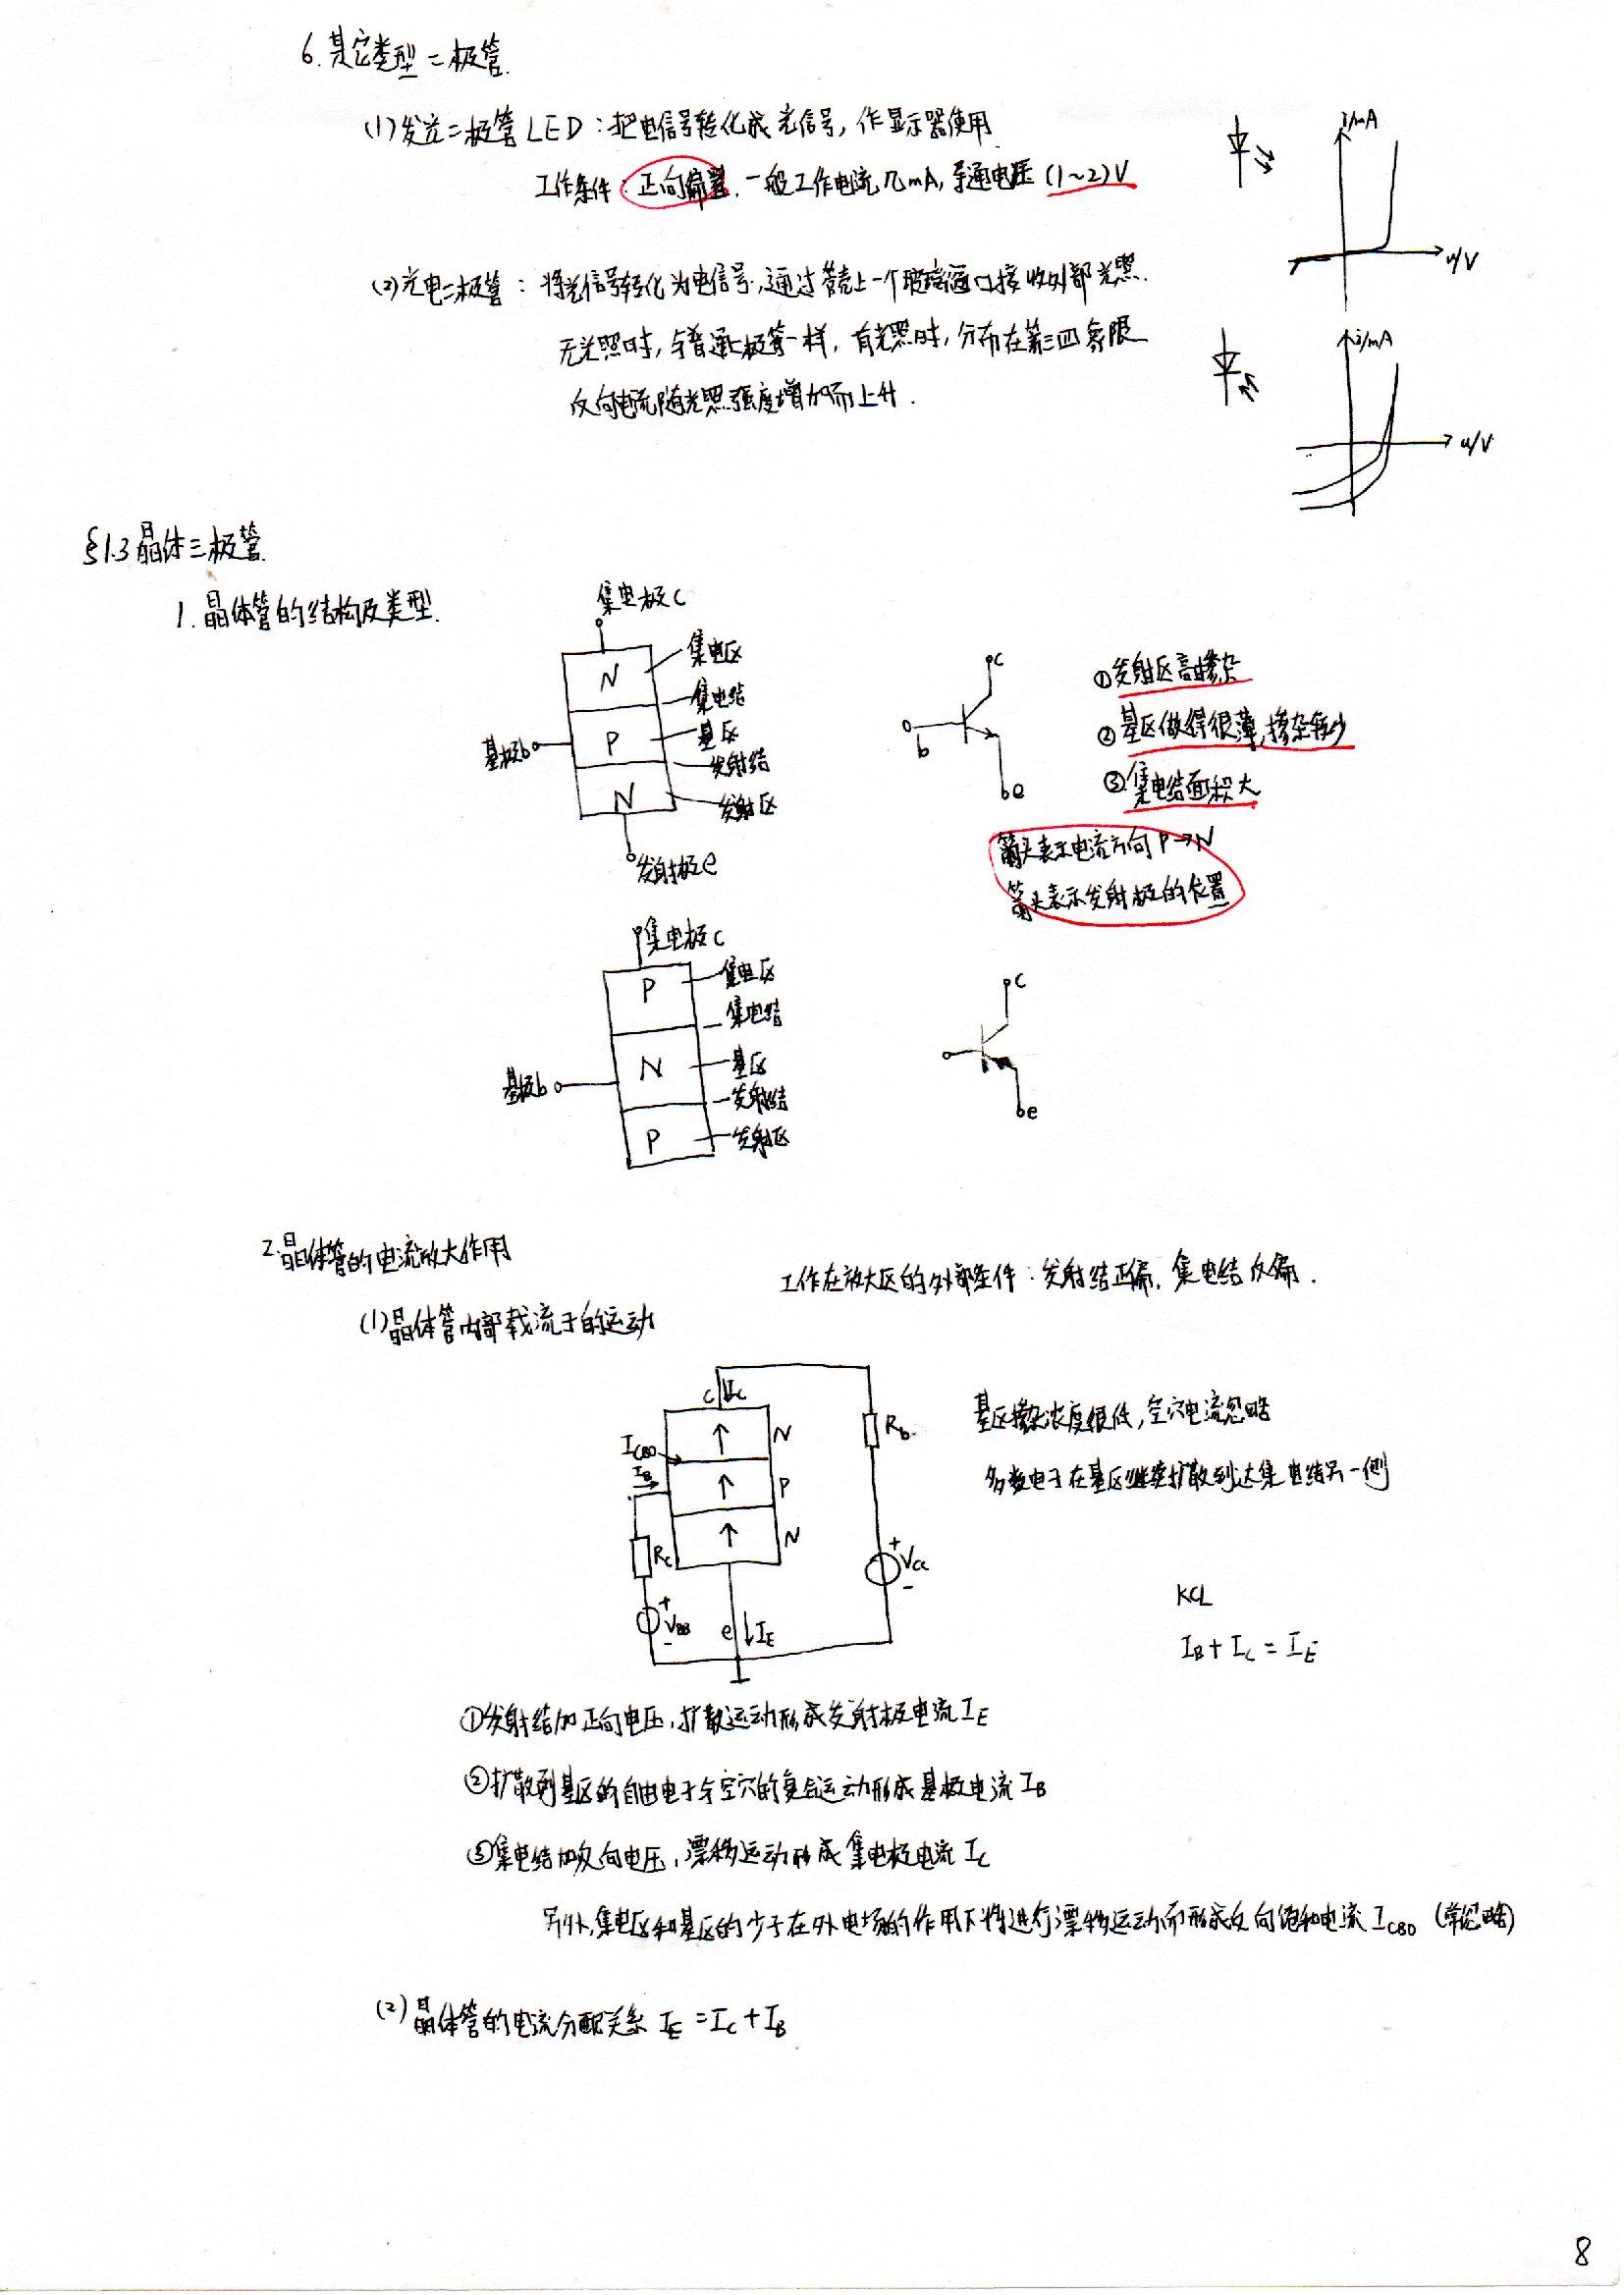 6.其它类型二极管.
(1)发光二极管LED：把电信号转化成光信号，作显示器使用
工作条件：正向偏置.一般工作电流几mA，导通电压(1~2)V
i/mA
u/V
(2)光电二极管：将光信号转化为电信号，通过管壳上一个玻璃窗口接收外部光照.
无光照时，与普通二极管一样，有光照时，分布在第三四象限
反向电流随光照强度增加而上升.
i/mA
u/V
§1.3晶体三极管.
1.晶体管的结构及类型.
集电极c
N
集电区
集电结
基极b
P
基区
发射结
N
发射区
发射极e
c
b
e
①发射区高掺杂
②基区做得很薄，掺杂较少
③集电结面积大
箭头表示电流方向P→N
箭头表示发射极的位置
集电极c
P
集电区
集电结
基极b
N
基区
发射结
P
发射区
c
e
2.晶体管的电流放大作用
工作在放大区的外部条件：发射结正偏，集电结反偏.
(1)晶体管内部载流子的运动
c
Ic
ICBO
IB
N
P
N
Rb
Rc
VCC
VBB
e
IE
+
-
+
-
基区掺杂浓度很低，空穴电流忽略
多数电子在基区继续扩散到达集电结另一侧
KCL
IB+IC=IE
①发射结加正向电压，扩散运动形成发射极电流IE
②扩散到基区的自由电子与空穴的复合运动形成基极电流IB
③集电结加反向电压，漂移运动形成集电极电流Ic
另外，集电区和基区的少子在外电场的作用下将进行漂移运动而形成反向饱和电流ICBO (常忽略)
(2)晶体管的电流分配关系 IE=IC+IB
8